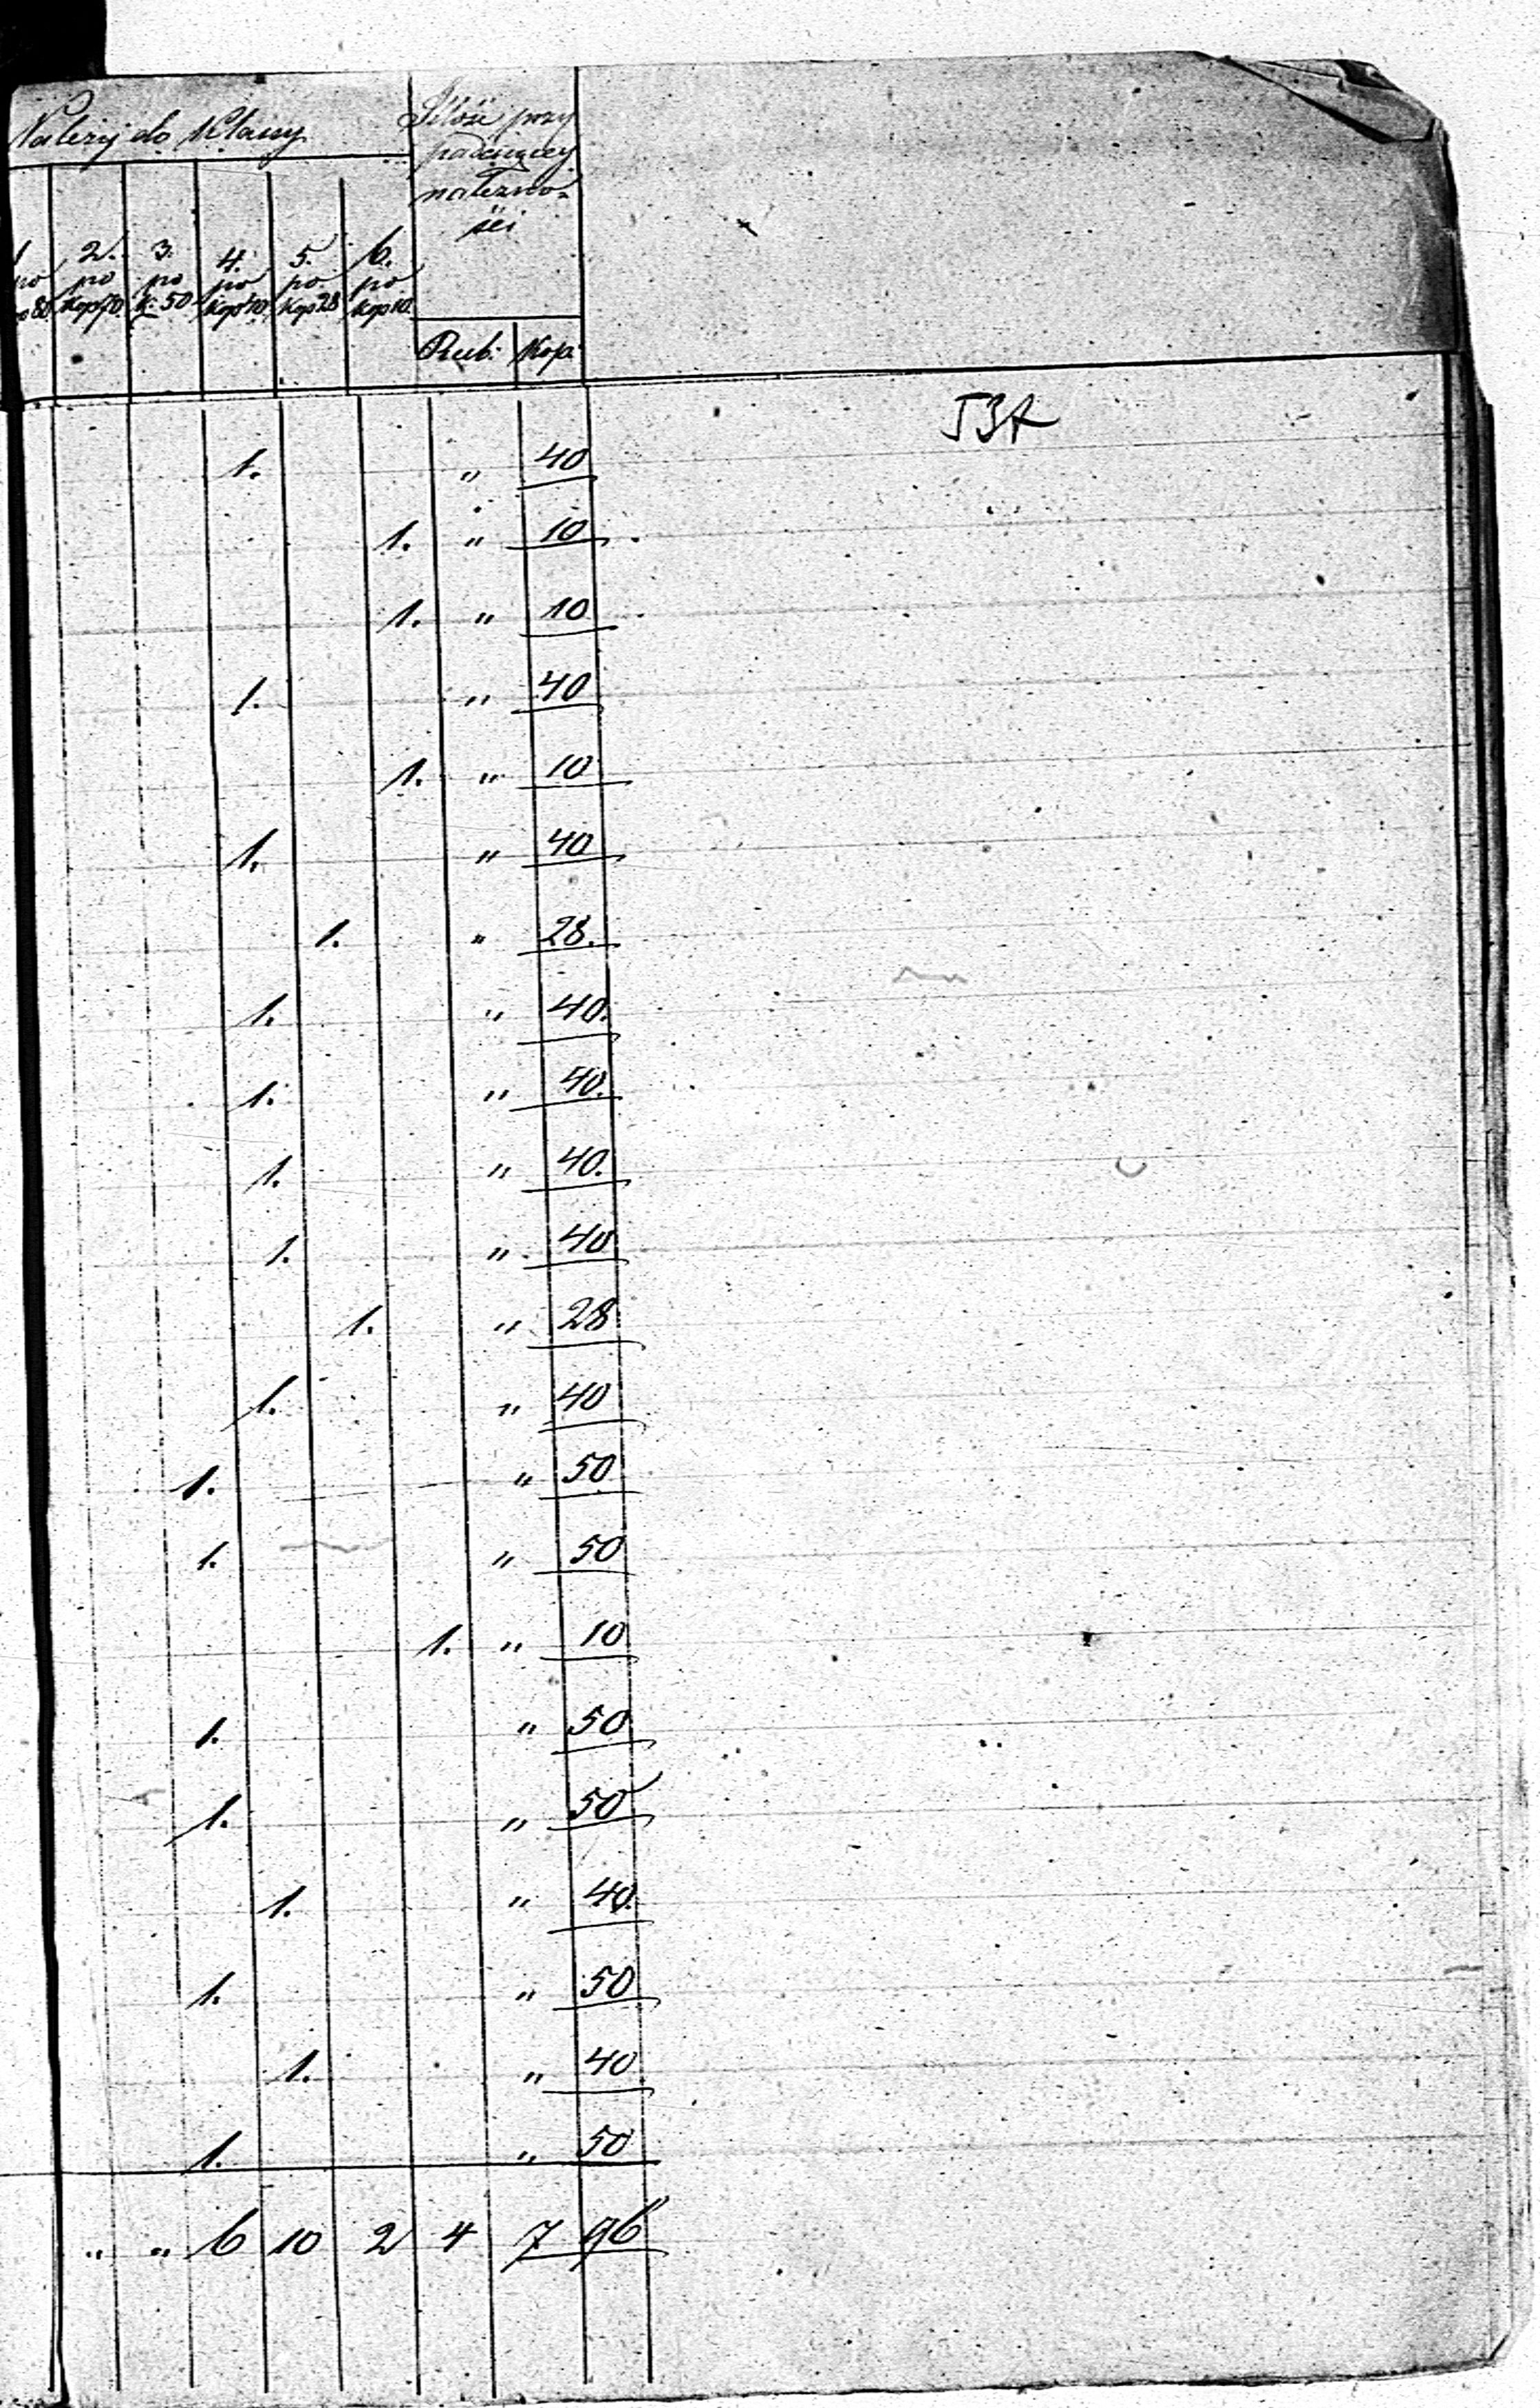 Należy do Klassy
Ilość przy
padaiącey
należno-
ści
1. 2. 3. 4. 5. 6.
po po po po po po
80 Kop 70 K. 50 Kop 40 Kop 28 Kop 10
Rub: Kop:
53A
1. " 40
1. " 10
1. " 10
1. " 40
1. " 10
1. " 40
1. " 28.
1. " 40.
1. " 40.
1. " 40.
1. " 40
1. " 28
1. " 40
1. " 50
1. " 50
1. " 10
1. " 50
1. " 50
1. " 40.
1. " 50
1. " 40
1. " 50
" " 6 10 2 4 7 96